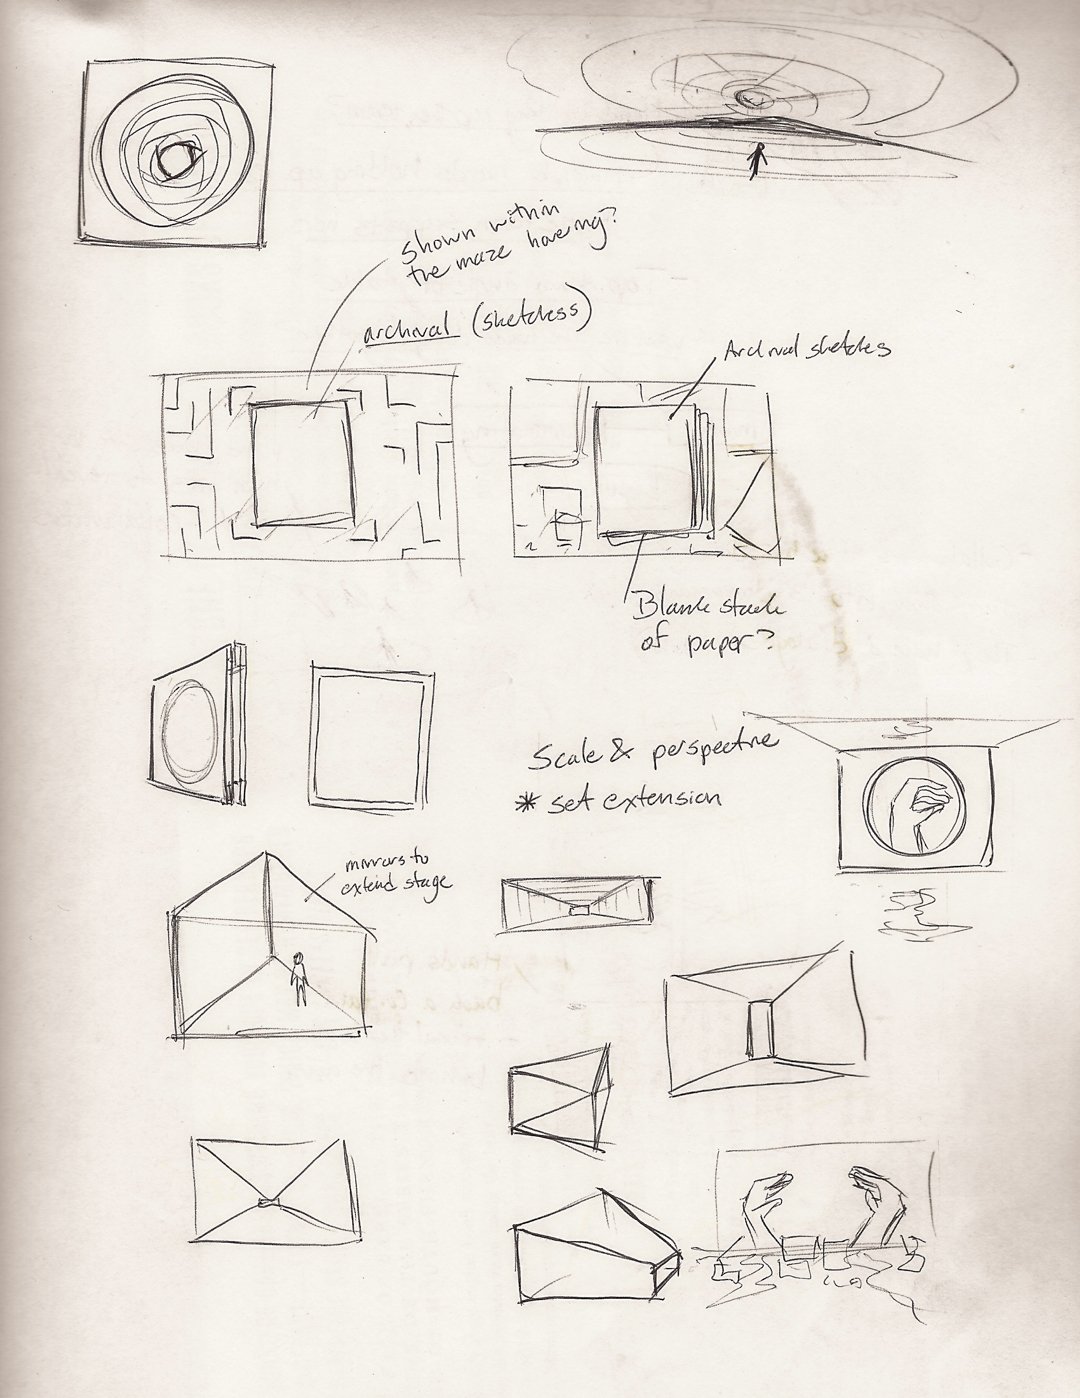 shown within
the maze hovering?
archival (sketches)
Archival sketches
Blank stack
of paper?
Scale & perspective
* set extension
mirrors to
extend stage